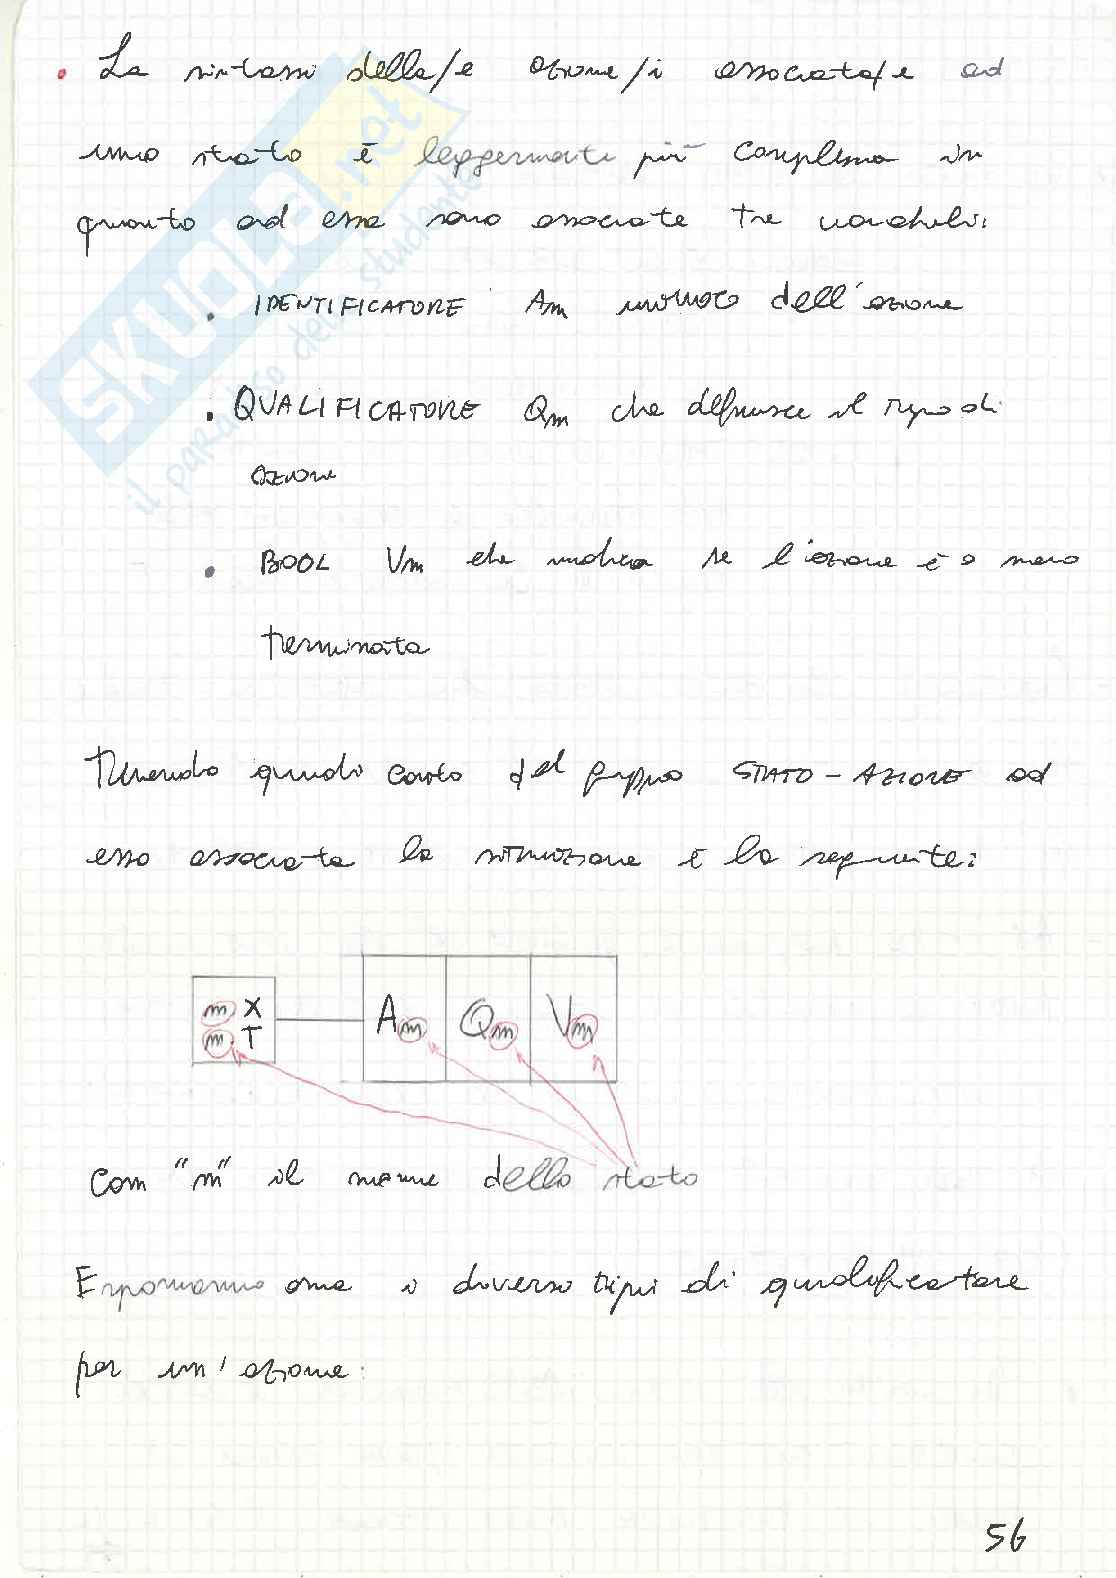 • La sintassi della/e azione/i associata/e ad
uno stato è leggermente più complessa in
quanto ad essa sono associate tre variabili:
• IDENTIFICATORE An univoco dell'azione
• QUALIFICATORE Qn che definisce il tipo di
azione
• BOOL Vn che indica se l'azione è o meno
terminata
Tenendo quindi conto del gruppo STATO - AZIONE ad
esso associata la situazione è la seguente:
n X
n.T
An Qn Vn
Con "n" il nome dello stato
Esponiamo ora i diversi tipi di qualificatore
per un'azione:
56
SKUOLA.net
il paradiso dello studente